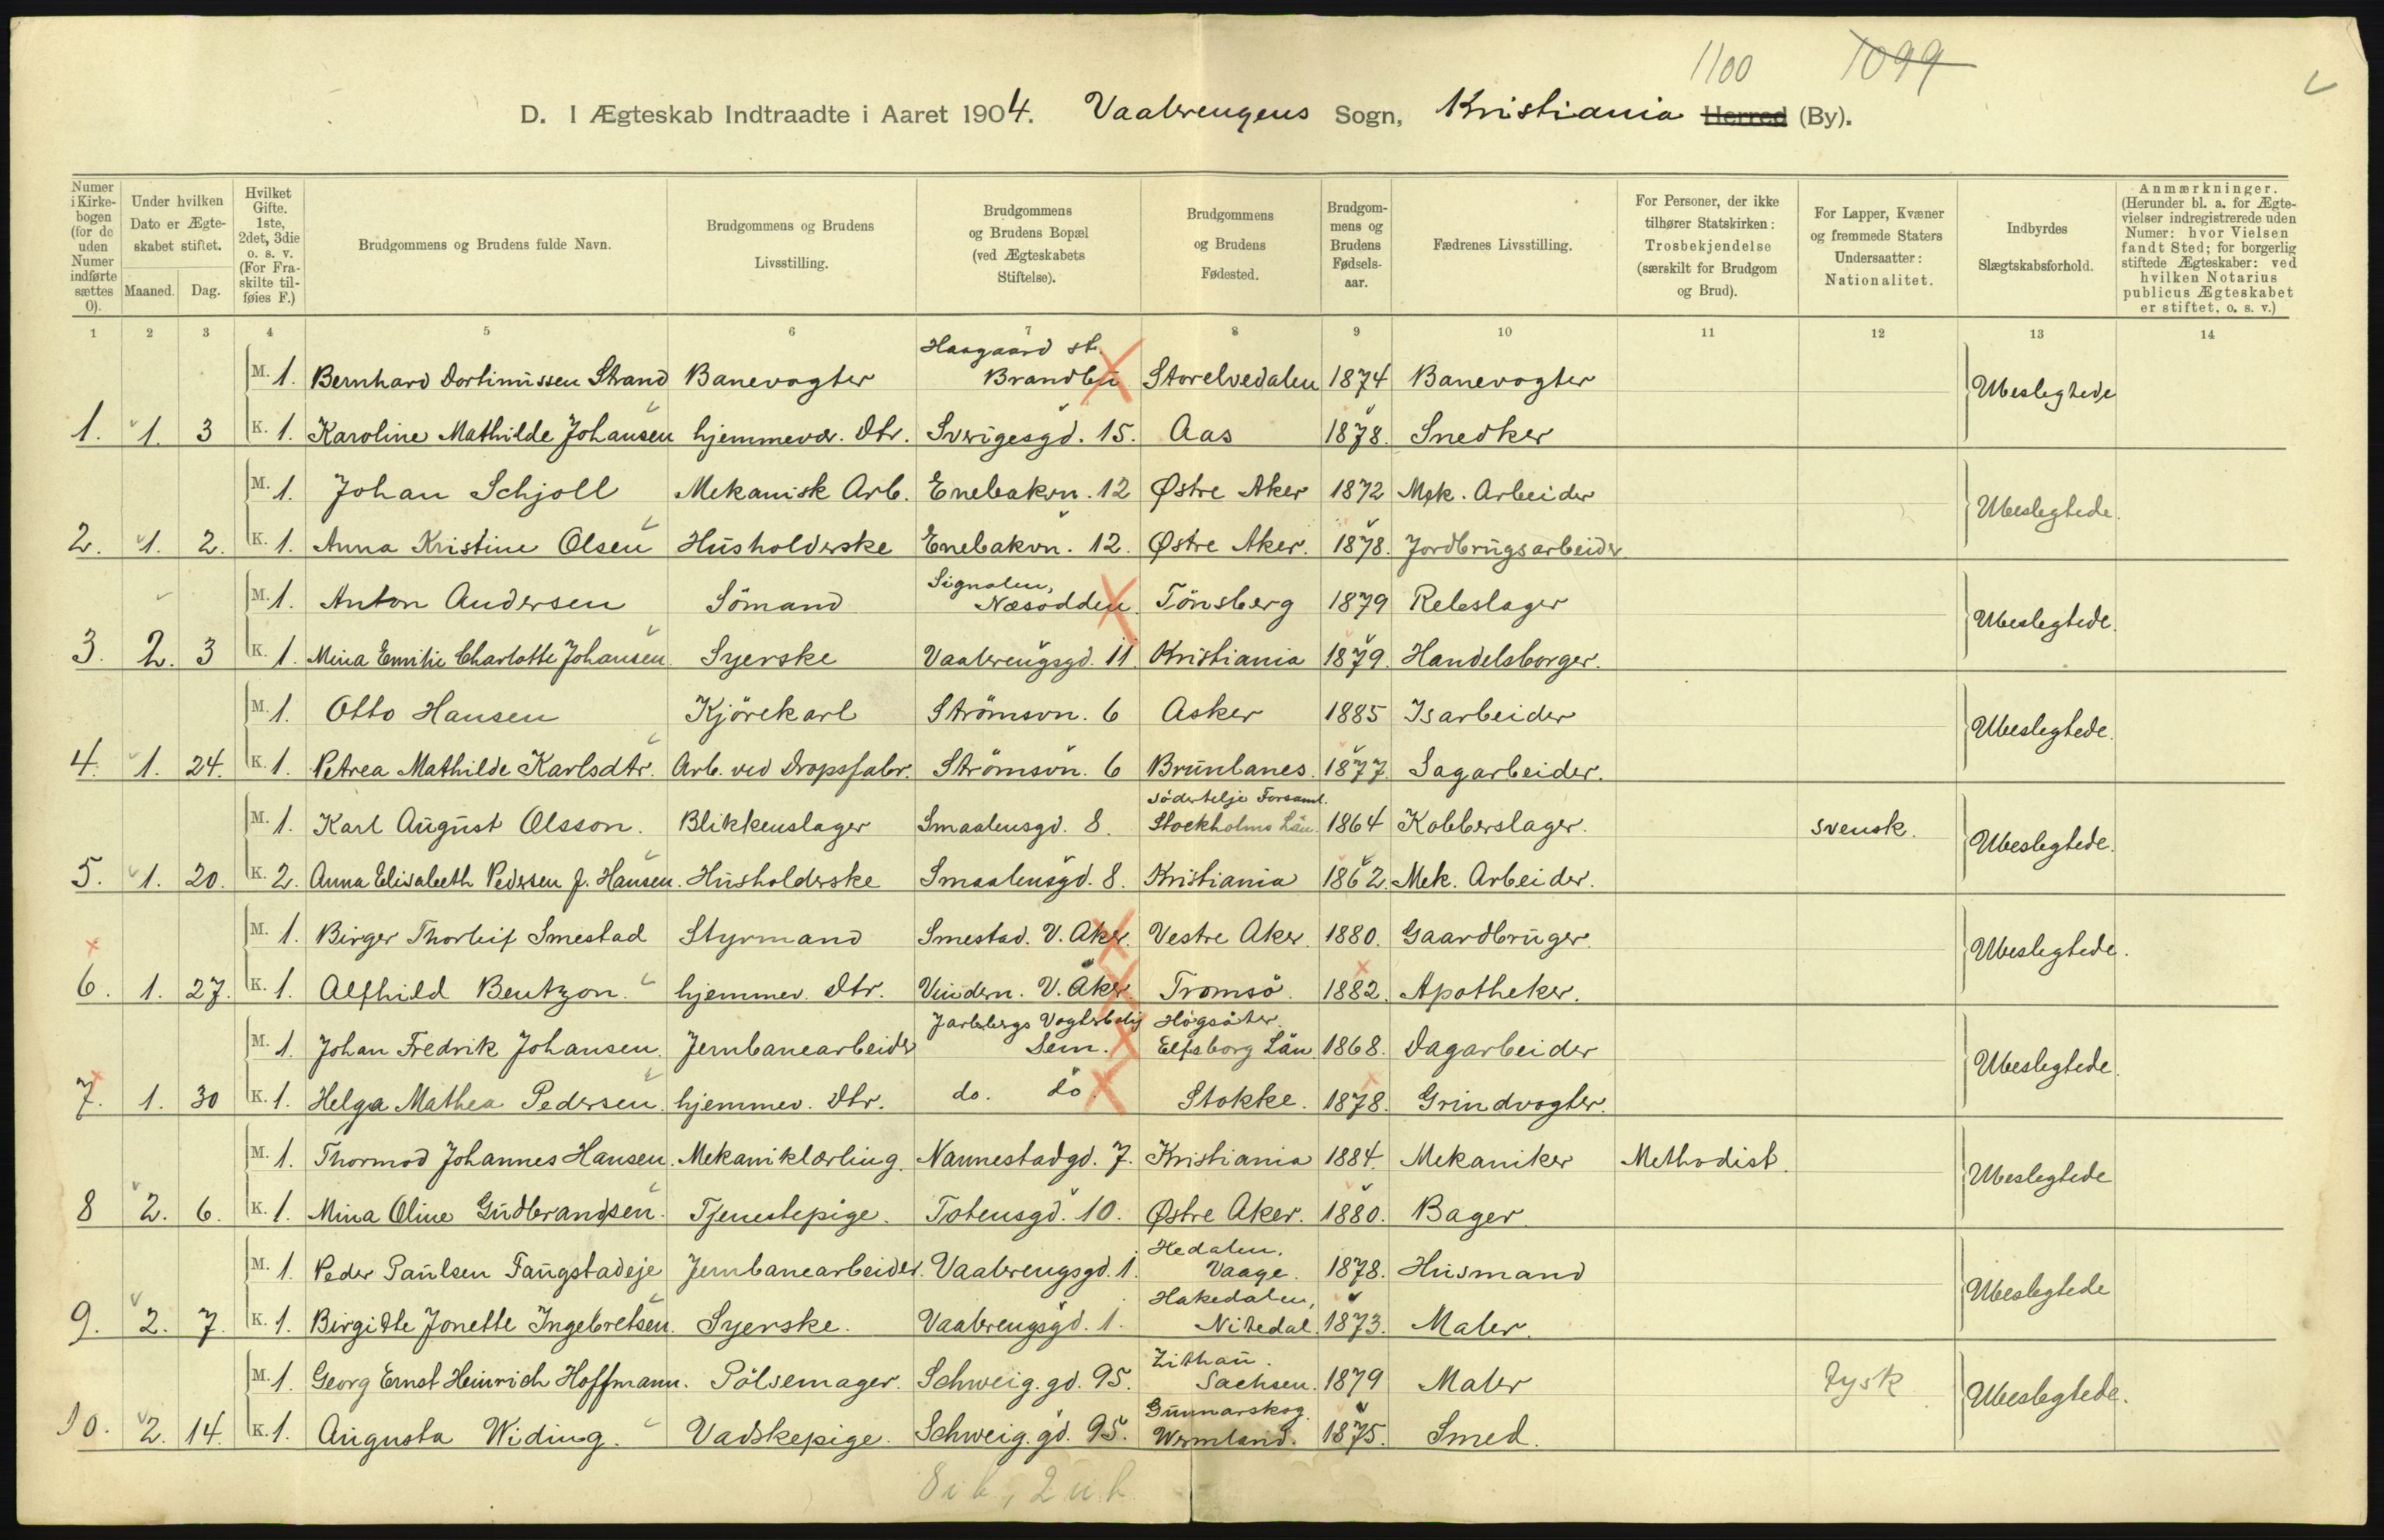 1100 1099
D. I Ægteskab Indtraadte i Aaret 1904. Vaalerengens Sogn, Kristiania Herred (By).
Numer i Kirke-bogen (for de uden Numer indførte sættes 0). | Under hvilken Dato er Ægte-skabet stiftet. Maaned. Dag. | Hvilket Gifte. 1ste, 2det, 3die o. s. v. (For Fra-skilte til-føies F.) | Brudgommens og Brudens fulde Navn. | Brudgommens og Brudens Livsstilling. | Brudgommens og Brudens Bopæl (ved Ægteskabets Stiftelse). | Brudgommens og Brudens Fødested. | Brudgom-mens og Brudens Fødsels-aar. | Fædrenes Livsstilling. | For Personer, der ikke tilhører Statskirken: Trosbekjendelse (særskilt for Brudgom og Brud). | For Lapper, Kvæner og fremmede Staters Undersaatter: Nationalitet. | Indbyrdes Slægtskabsforhold. | Anmærkninger. (Herunder bl. a. for Ægte-vielser indregistrerede uden Numer: hvor Vielsen fandt Sted; for borgerlig stiftede Ægteskaber: ved hvilken Notarius publicus Ægteskabet er stiftet, o. s. v.)
1 2 3 4 5 6 7 8 9 10 11 12 13 14
M. 1. Bernhard Dortinussen Strand Banevogter Haagaard st. Brandbu Storelvedalen 1874 Banevogter Ubeslegtede
1. 1. 3 K. 1. Karoline Mathilde Johansen hjemmevær. Dtr. Sverigesgd. 15. Aas 1878. Snedker
M. 1. Johan Schjoll Mekanisk Arb. Enebakvn. 12 Østre Aker 1872 Mek. Arbeider Ubeslegtede.
2. 1. 2. K. 1. Anna Kristine Olsen Husholderske Enebakvn. 12. Østre Aker. 1878. Jordbrugsarbeider
M. 1. Anton Andersen Sömand Signalen, Næsodden. Tönsberg 1879 Rebslager Ubeslegtede.
3. 2. 3 K. 1. Mina Emilie Charlotte Johansen. Syerske Vaalerengsgd. 11. Kristiania 1879. Handelsborger.
M. 1. Otto Hansen Kjörekarl Strömsvn. 6 Asker 1885 Isarbeider Ubeslegtede.
4. 1. 24. K. 1. Petrea Mathilde Karlsdtr. Arb. ved Dropsfabr. Strömsvn. 6 Brunlanes. 1877. Sagarbeider.
M. 1. Karl August Olsson. Blikkenslager Smaalensgd. 8. Södertelje Forsaml. Stockholms Län 1864 Kobberslager. svensk. Ubeslegtede.
5. 1. 20. K. 2. Anna Elisabeth Pedersen f. Hansen. Husholderske Smaalensgd. 8. Kristiania 1862. Mek. Arbeider.
M. 1. Birger Thorleif Smestad Styrmand Smestad. V. Aker. Vestre Aker. 1880. Gaardbruger. Ubeslegtede.
6. 1. 27. K. 1. Alfhild Bentzon. hjemmev. Dtr. Vindern. V. Aker. Tromsö. 1882. Apotheker.
M. 1. Johan Fredrik Johansen. Jernbanearbeider Jarlsbergs Vogterbolig Sem. Högsäter. Elfsborg Län 1868. Dagarbeider Ubeslegtede.
7. 1. 30 K. 1. Helga Mathea Pedersen. hjemmev. Dtr. do. do. Stokke. 1878. Grindvogter.
M. 1. Thormod Johannes Hansen. Mekaniklærling. Nannestadgd. 7. Kristiania 1884. Mekaniker Methodist. Ubeslegtede
8 2. 6. K. 1. Mina Oline Gudbrandsen. Tjenestepige. Totensgd. 10. Østre Aker. 1880. Bager.
M. 1. Peder Paulsen Faugstadeje Jernbanearbeider. Vaalerengsgd. 1. Hedalen, Vaage. 1878. Husmand Ubeslegtede
9. 2. 7. K. 1. Birgitte Jonette Ingebretsen. Syerske. Vaalerengsgd. 1. Hakedalen, Nitedal. 1873. Maler.
M. 1. Georg Ernst Heinrich Hoffmann. Pölsemager. Schweig. gd. 95. Zithau. Sachsen. 1879 Maler tysk Ubeslegtede.
10. 2. 14. K. 1. Augusta Widing. Vadskepige. Schweig. gd. 95. Gunnarskog. Wermland. 1875. Smed.
8 i b, 2 u. b.